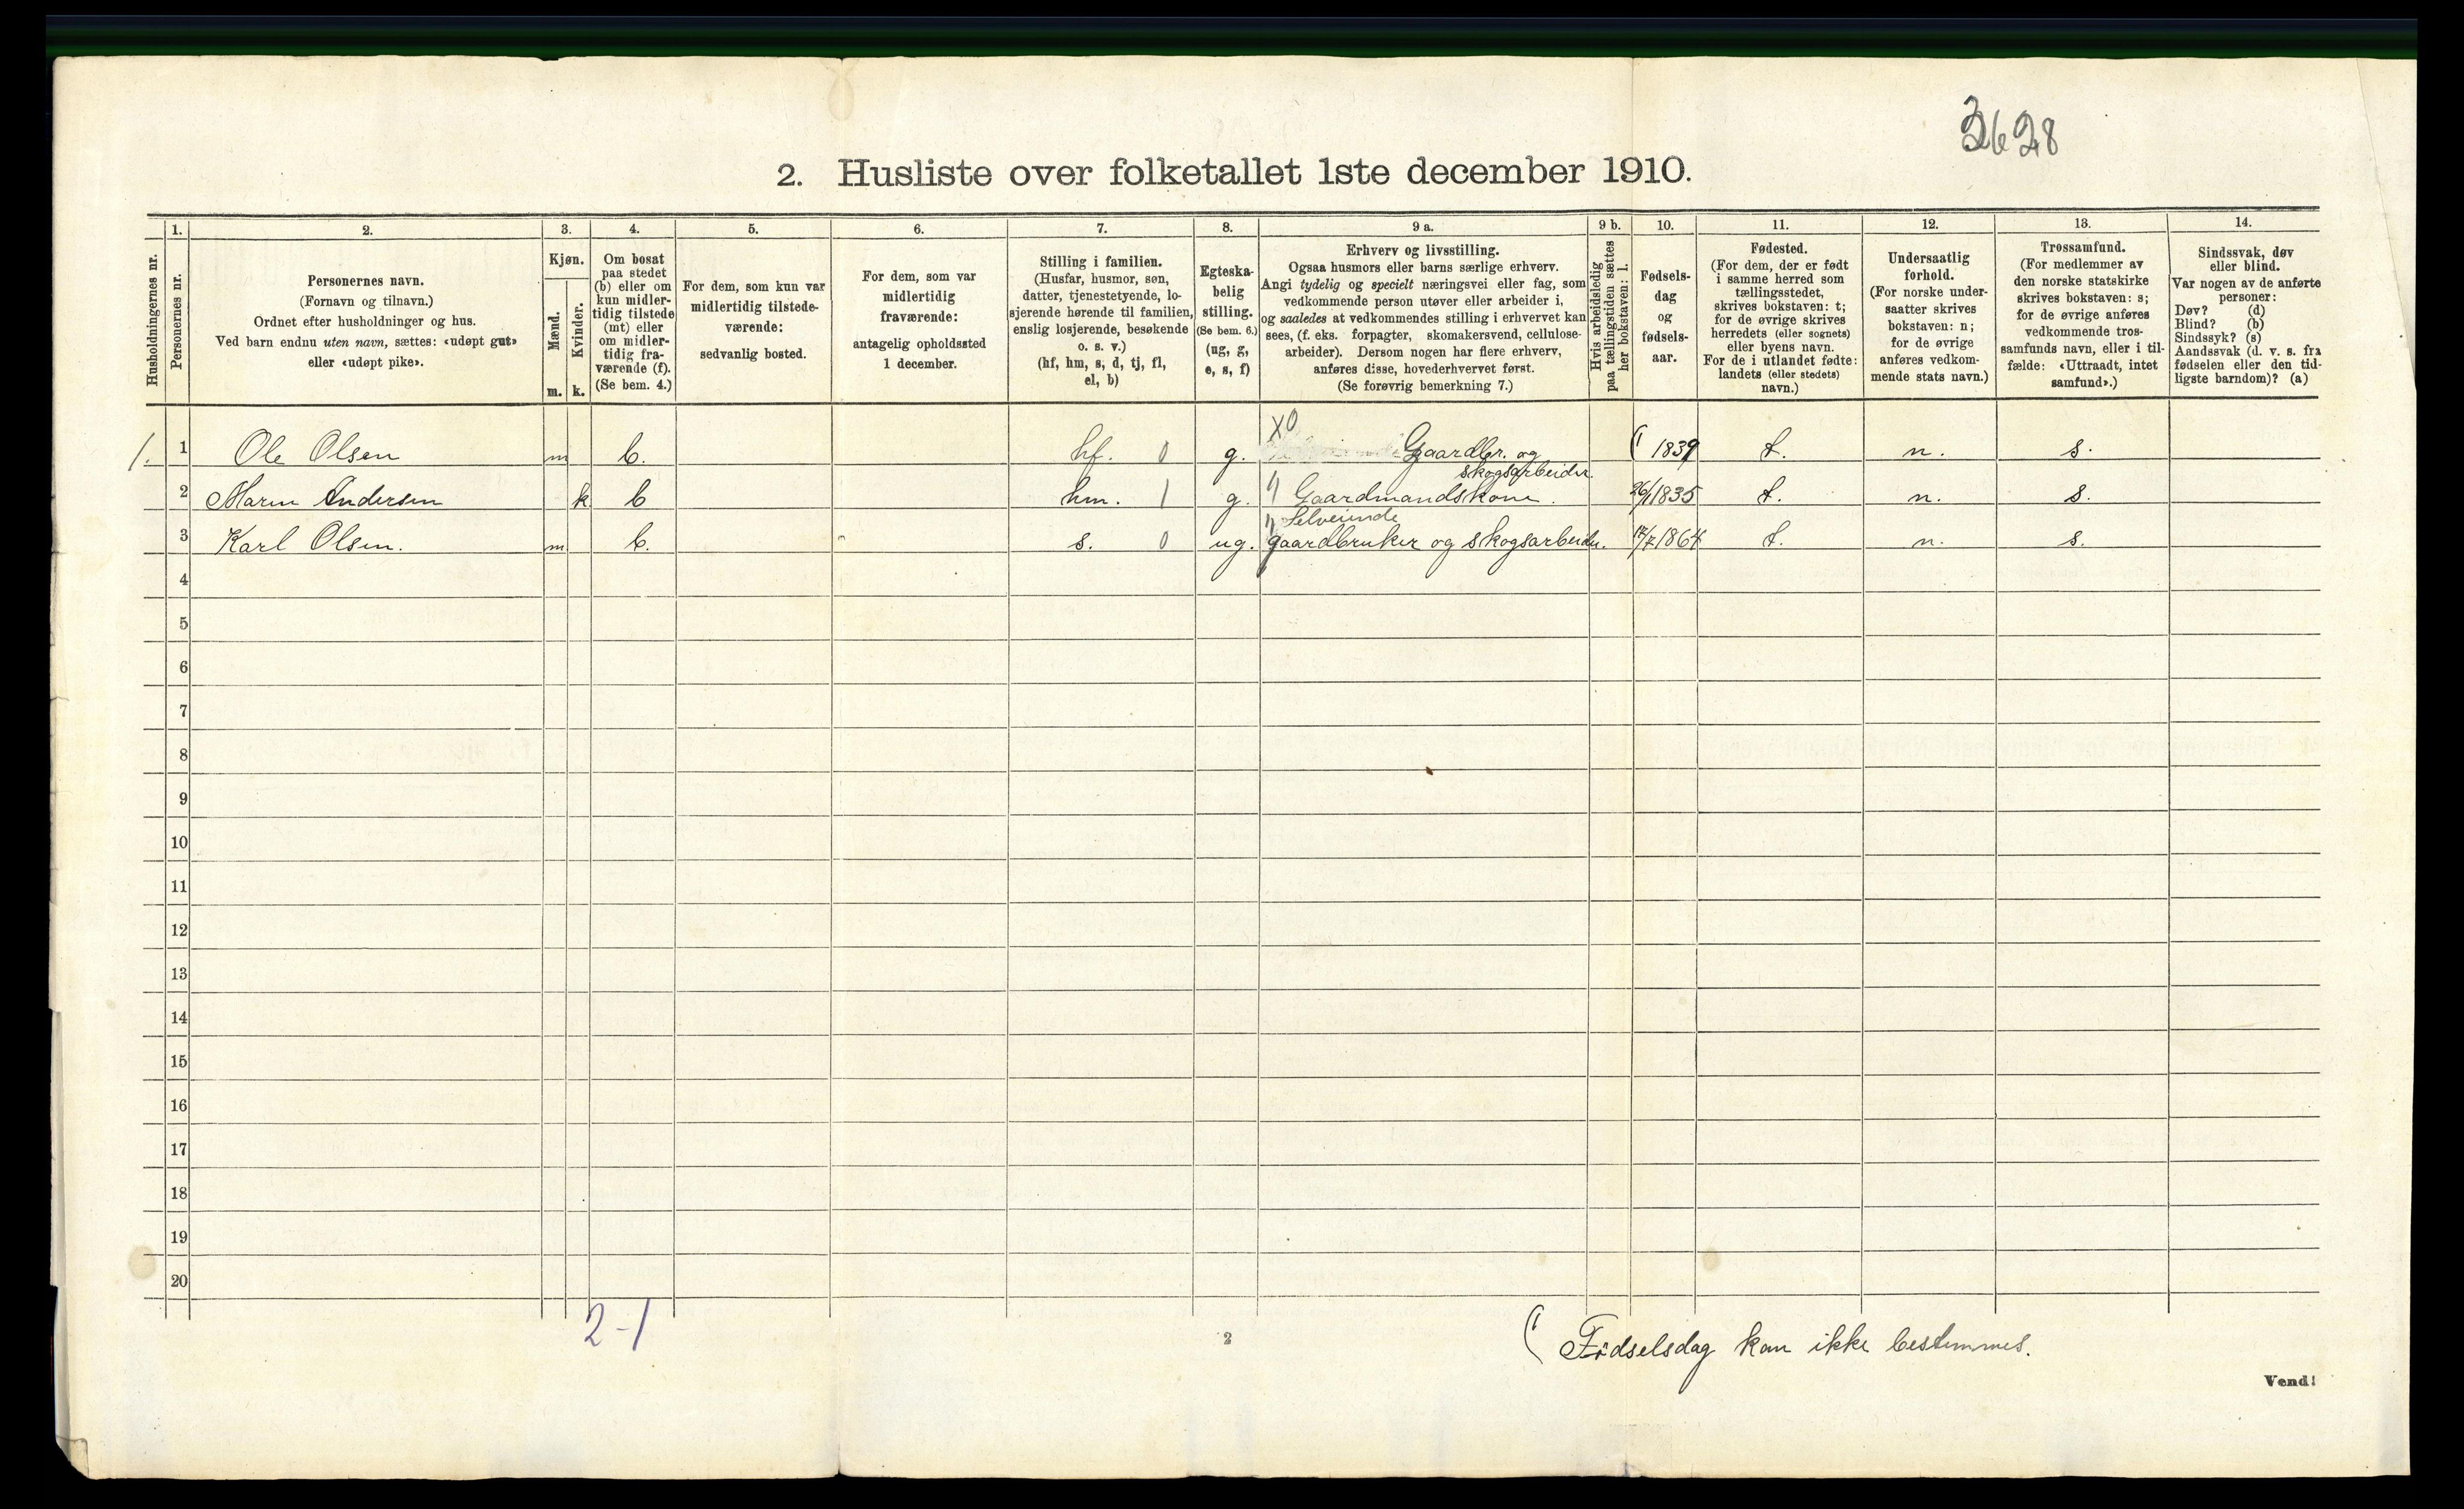 3628
2. Husliste over folketallet 1ste december 1910.
1. 2. 3. 4. 5. 6. 7. 8. 9 a. 9 b. 10. 11. 12. 13. 14.
Husholdningernes nr.
Personernes nr.
Personernes navn.
(Fornavn og tilnavn.)
Ordnet efter husholdninger og hus.
Ved barn endnu uten navn, sættes: «udøpt gut»
eller «udøpt pike».
Kjøn.
Mænd.
Kvinder.
m. k.
Om bosat
paa stedet
(b) eller om
kun midler-
tidig tilstede
(mt) eller
om midler-
tidig fra-
værende (f).
(Se bem. 4.)
For dem, som kun var
midlertidig tilstede-
værende:
sedvanlig bosted.
For dem, som var
midlertidig
fraværende:
antagelig opholdssted
1 december.
Stilling i familien.
(Husfar, husmor, søn,
datter, tjenestetyende, lo-
sjerende hørende til familien,
enslig losjerende, besøkende
o. s. v.)
(hf, hm, s, d, tj, fl,
el, b)
Egteska-
belig
stilling.
(Se bem. 6.)
(ug, g,
e, s, f)
Erhverv og livsstilling.
Ogsaa husmors eller barns særlige erhverv.
Angi tydelig og specielt næringsvei eller fag, som
vedkommende person utøver eller arbeider i,
og saaledes at vedkommendes stilling i erhvervet kan
sees, (f. eks. forpagter, skomakersvend, cellulose-
arbeider). Dersom nogen har flere erhverv,
anføres disse, hovederhvervet først.
(Se forøvrig bemerkning 7.)
Hvis arbeidsledig
paa tællingstiden sættes
her bokstaven: l.
Fødsels-
dag
og
fødsels-
aar.
Fødested.
(For dem, der er født
i samme herred som
tællingsstedet,
skrives bokstaven: t;
for de øvrige skrives
herredets (eller sognets)
eller byens navn.
For de i utlandet fødte:
landets (eller stedets)
navn.)
Undersaatlig
forhold.
(For norske under-
saatter skrives
bokstaven: n;
for de øvrige
anføres vedkom-
mende stats navn.)
Trossamfund.
(For medlemmer av
den norske statskirke
skrives bokstaven: s;
for de øvrige anføres
vedkommende tros-
samfunds navn, eller i til-
fælde: «Uttraadt, intet
samfund».)
Sindssvak, døv
eller blind.
Var nogen av de anførte
personer:
Døv? (d)
Blind? (b)
Sindssyk? (s)
Aandssvak (d. v. s. fra
fødselen eller den tid-
ligste barndom)? (a)
X0
1. 1 Ole Olsen m b. hf. 0 g. Gaardbr. og (1 1839 t. n. s.
skogsarbeider.
2 Maren Andersen k b hm. 1 g. " Gaardmandskone. 26/1 1835 t. n. s.
" Selveiende
3 Karl Olsen. m b. s. 0 ug. gaardbruker og skogsarbeider. 17/7 1864 t. n. s.
4
5
6
7
8
9
10
11
12
13
14
15
16
17
18
19
20
2-1
2
(1 Fødselsdag kan ikke bestemmes.
Vend!